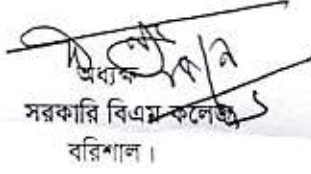 অধ্যক্ষ
সরকারি বিএম কলেজ
বরিশাল।